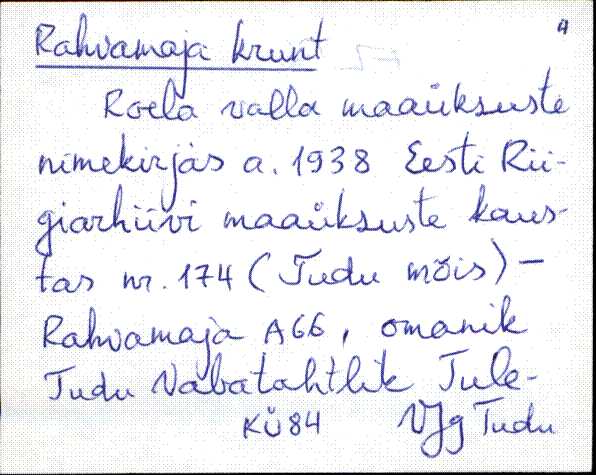 4
Rahvamaja krunt
Roela valla maaüksuste
nimekirjas a. 1938 Eesti Rii-
giarhiivi maaüksuste kaus-
tas nr. 174 (Tudu mõis) –
Rahvamaja A66, omanik
Tudu Vabatahtlik Tule-
KÜ 84 VJg Tudu